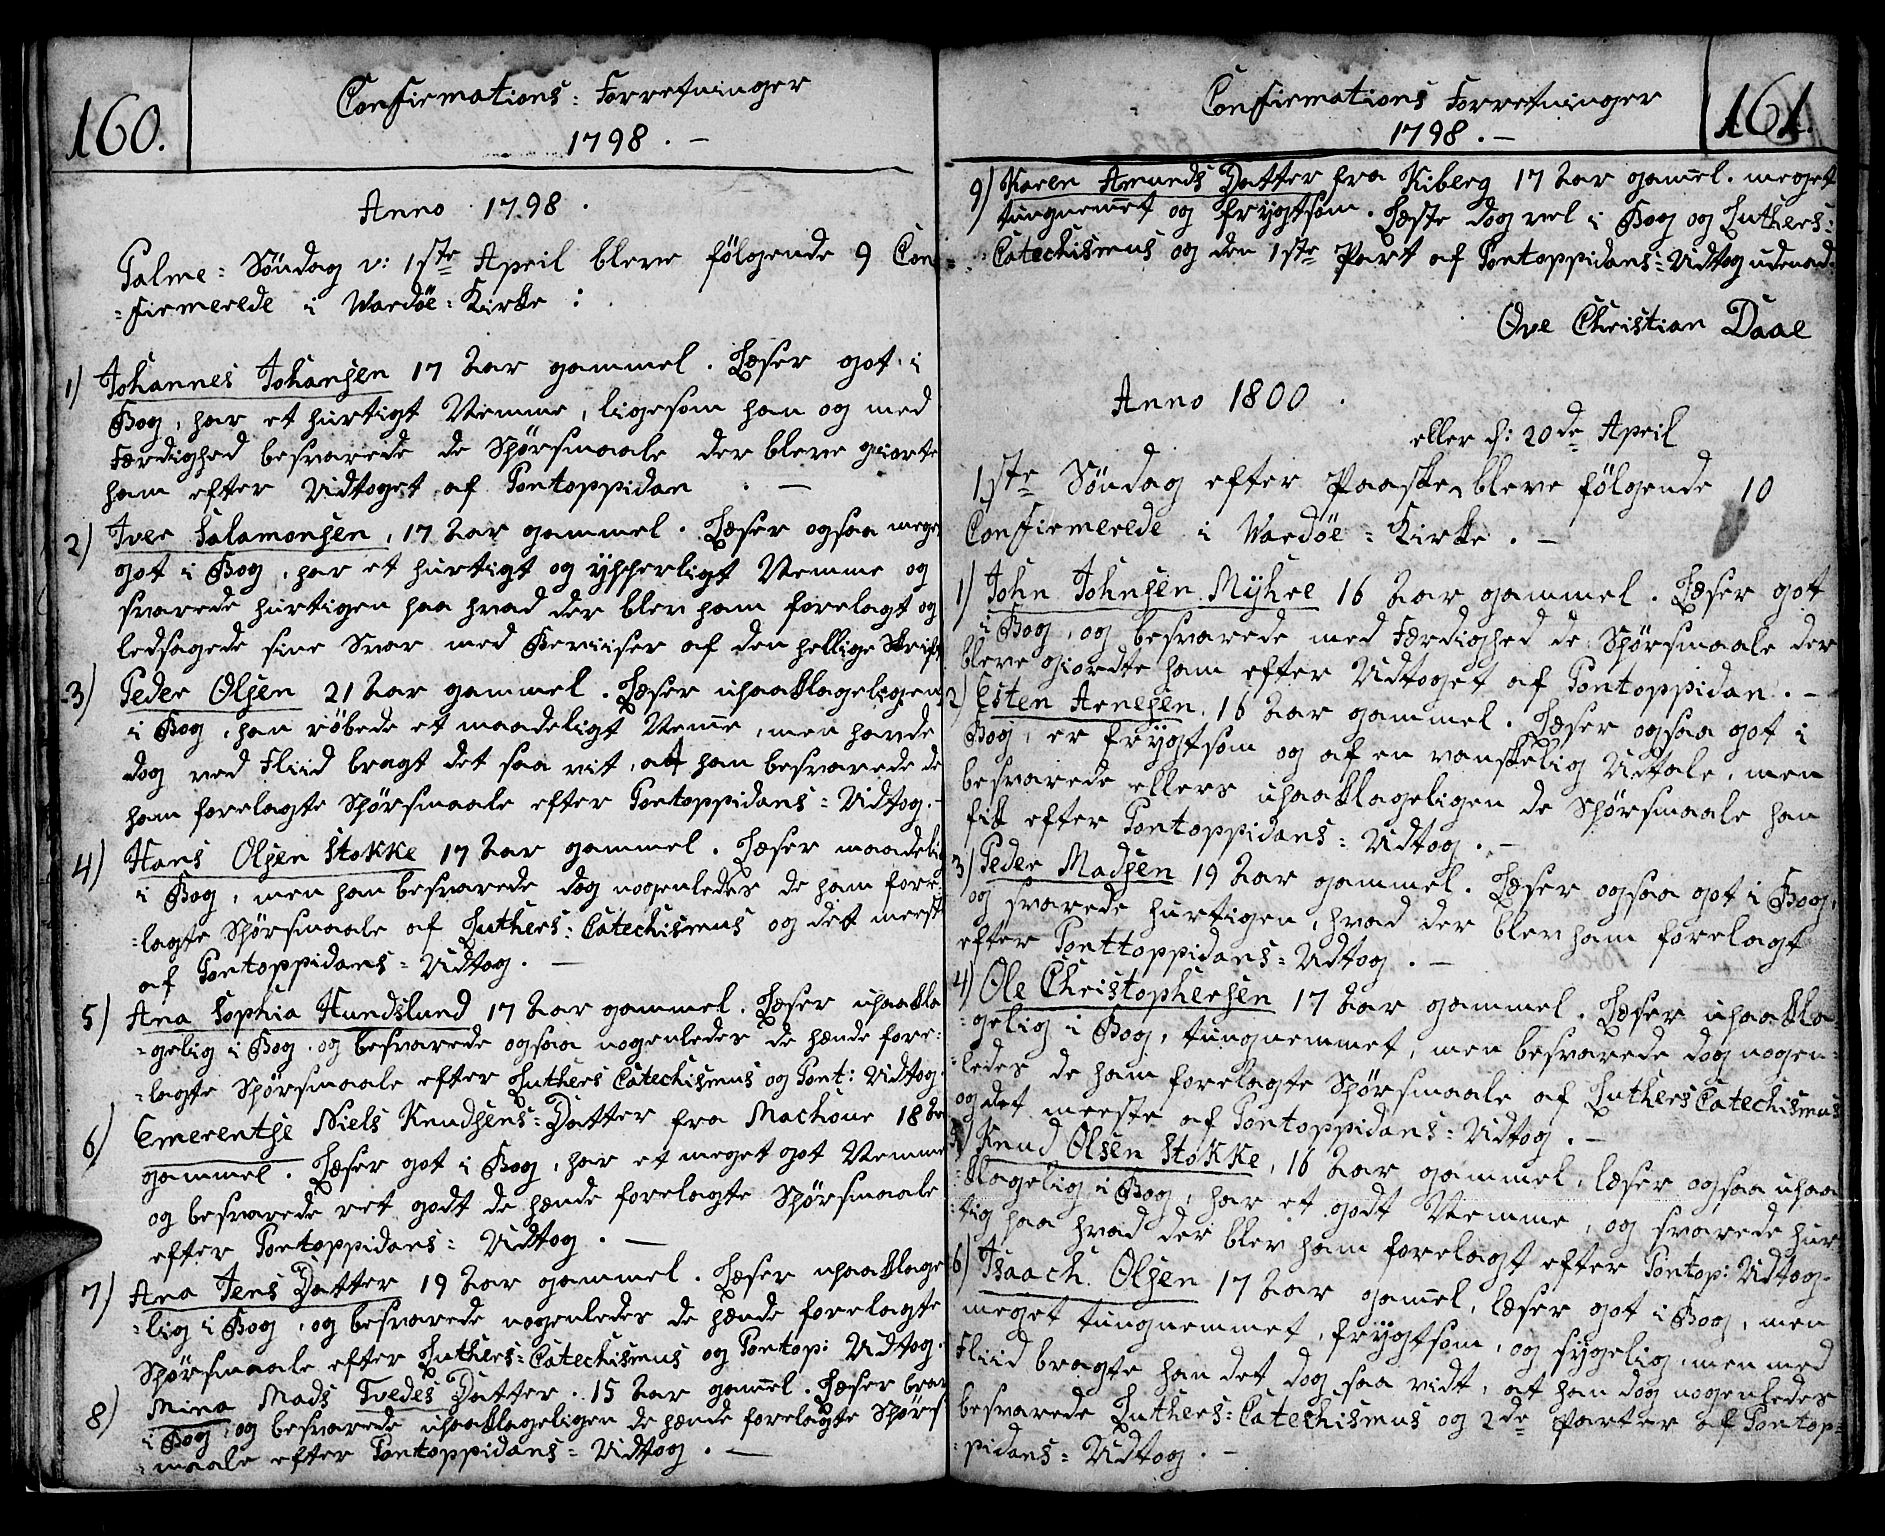 160.
Confirmations: Forretninger
1798. -
Anno 1798.
Palme: Söndag d: 1ste April bleve fölgende 9 Con
=firmerede i Wardöe: Kirke:
1) Johannes Johansen 17 Aar gammel. Læser got i
Bog, har et hurtigt Nemme, ligesom han og med
Færdighed besvarede de Spörsmaale der bleve giorte
ham efter Udtoget af Pontoppidan. -
2) Iver Salamonsen, 17 Aar gammel. Læser ogsaa meget
got i Bog, har et hurtigt og ypperligt Nemme og
svarede hurtigen paa hvad der blev ham forelagt og
ledsagede sine Svar med Beviiser af den hellige Skrift
3) Peder Olsen 21 Aar gammel. Læser upaaklageligen
i Bog, han röbede et maadeligt Nem̅e, men havde
dog ved Fliid bragt det saa vit, at han besvarede de
ham forelagte Spörsmaale efter Pontoppidans= Udtog. -
4) Hans Olsen Stokke 17 Aar gammel. Læser maadelig
i Bog, men han besvarede dog nogenledes de ham fore=
=lagte Spörsmaale af Luthers: Catechismus og det meeste
af Pontoppidans= Udtog. -
5) Ana Sophia Hundslund 17 Aar gammel. Læser upaakla
=gelig i Bog, og besvarede ogsaa nogenledes de hænde fore=
=lagte Spörsmaale efter Luthers Catechismus og Pont: Udtog.
6) Emerentse Niels Knudsens= Datter fra Machoue 18 Aar
gammel. Læser got i Bog, har et meget got Nemme
og besvarede ret godt de hænde forelagte Spörsmaale
efter Pontoppidans= Udtog. -
7) Ana Jens Datter 19 Aar gammel. Læser upaaklage
=lig i Bog, og besvarede nogenledes de hænde forelagte
Spörsmaale efter Luthers= Catechismus og Pontop: Udtog.
8) Mina Mads Tvedes Datter. 15 Aar gam̅el. Læser brav
i Bog, og besvarede upaaklageligen de hænde forelagte Spörs
maale efter Pontoppidans= Udtog. -
Confirmations Forretninger
1798. -
161.
9) Karen Amunds Datter fra Kiberg 17 Aar gam̅el. meget
tungnem̅et og frygtsom. Læste dog vel i Bog og Luthers=
=Catechismus og den 1ste Part af Pontoppidans= Udtog udenad.
Ove Christian Daae
Anno 1800.
eller d: 20de April
1ste Söndag efter Paaske bleve fölgende 10
Confirmerede i Wardöe= Kirke. -
1) John Johnsen Myhre 16 Aar gammel. Læser got
i Bog, og besvarede med Færdighed de Spörsmaale der
bleve giordte ham efter Udtoget af Pontoppidan. -
2) Esten Arnesen 16 Aar gammel. Læser ogsaa got i
Bog, er frygtsom og af en vanskelig Udtale, men
besvarede ellers upaaklageligen de Spörsmaale han
fik efter Pontoppidans= Udtog. -
3) Peder Madsen 19 Aar gammel. Læser ogsaa got i Bog,
og svarede hurtigen, hvad der blev ham forelagt
efter Ponttoppidans= Udtog. -
4) Ole Christophersen 17 Aar gammel. Læser upaakla=
=gelig i Bog, tungnemmet, men besvarede dog nogen=
=ledes de ham forelagte Spörsmaale af Luthers Catechismus
og det meeste af Pontoppidans= Udtog. -
5) Knud Olsen Stokke, 16 Aar gammel, læser ogsaa upaa
=klagelig i Bog, har et godt Nemme, og svarede hur
=tig paa hvad der blev ham forelagt efter Pontop: Udtog.
6) Isaach Olsen 17 Aar gam̅el, læser got i Bog, men
meget tungnemmet, frygtsom, og sygelig, men med
Fliid bragte han det dog saa vidt, at han dog nogenledes
besvarede Luthers= Catechismus og 2de Parter af Pontop=
=pidans= Udtog. -